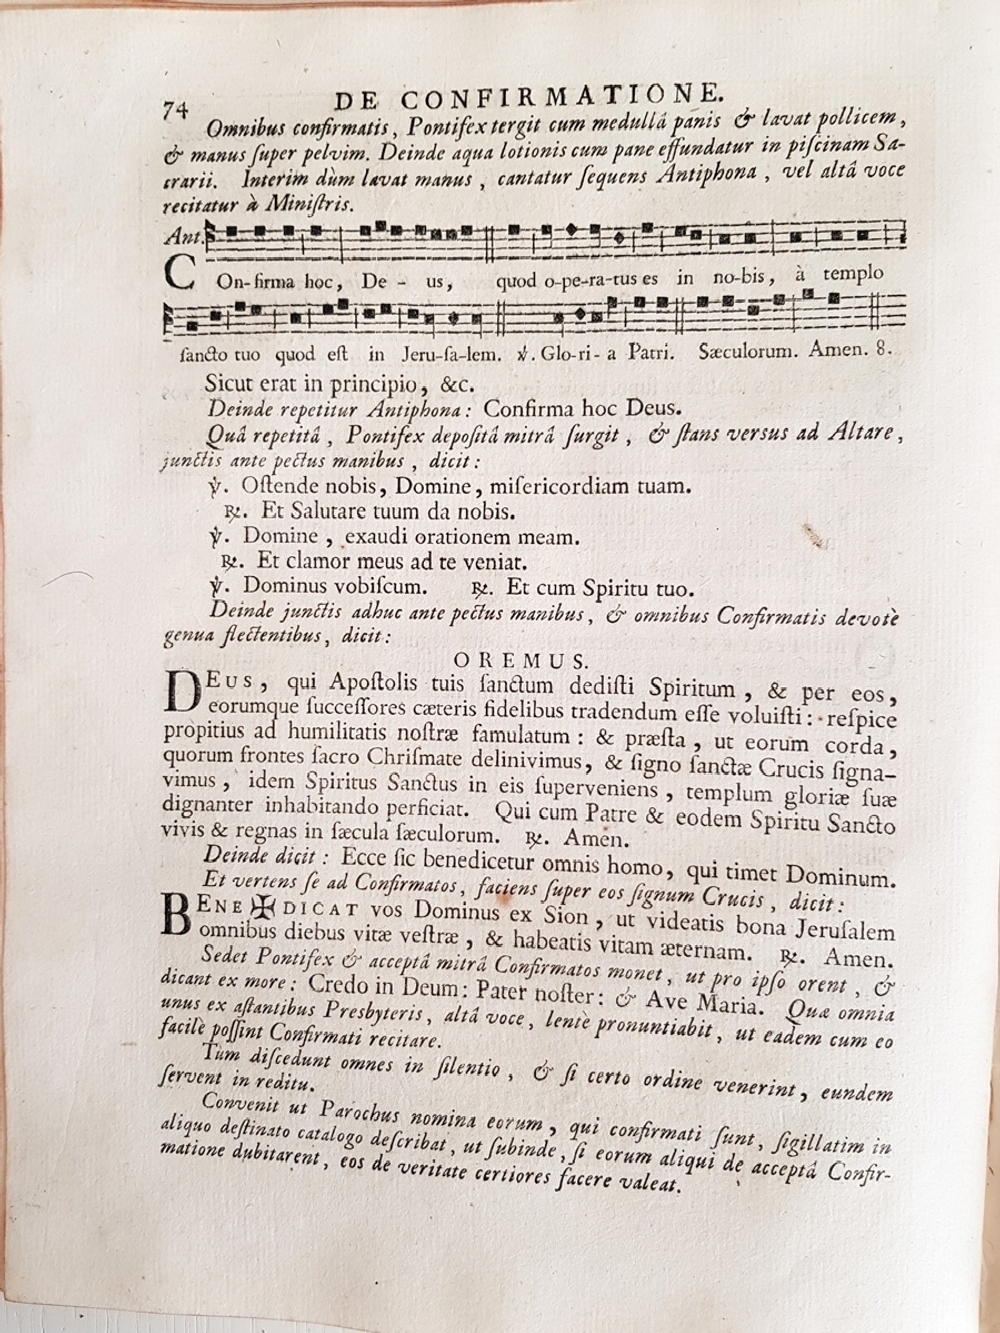 74
DE CONFIRMATIONE.
Omnibus confirmatis, Pontifex tergit cum medullâ panis & lavat pollicem,
& manus ſuper pelvim. Deinde aqua lotionis cum pane effundatur in piſcinam Sa-
crarii. Interim dùm lavat manus, cantatur ſequens Antiphona, vel altâ voce
recitatur à Miniſtris.
Ant.
COn-firma hoc, De - us, quod o-pe-ra-tus es in no-bis, à templo
ſancto tuo quod eſt in Jeru-ſa-lem. ℣. Glo-ri-a Patri. Sæculorum. Amen. 8.
Sicut erat in principio, &c.
Deinde repetitur Antiphona: Confirma hoc Deus.
Quâ repetitâ, Pontifex depoſitâ mitrâ ſurgit, & ſtans versus ad Altare,
junctis ante pectus manibus, dicit:
℣. Oſtende nobis, Domine, miſericordiam tuam.
℟. Et Salutare tuum da nobis.
℣. Domine, exaudi orationem meam.
℟. Et clamor meus ad te veniat.
℣. Dominus vobiſcum. ℟. Et cum Spiritu tuo.
Deinde junctis adhuc ante pectus manibus, & omnibus Confirmatis devotè
genua flectentibus, dicit:
OREMUS.
DEus, qui Apoſtolis tuis ſanctum dediſti Spiritum, & per eos,
eorumque ſucceſſores cæteris fidelibus tradendum eſſe voluiſti: reſpice
propitius ad humilitatis noſtræ famulatum: & præſta, ut eorum corda,
quorum frontes ſacro Chriſmate delinivimus, & ſigno ſanctæ Crucis ſigna-
vimus, idem Spiritus Sanctus in eis ſuperveniens, templum gloriæ ſuæ
dignanter inhabitando perficiat. Qui cum Patre & eodem Spiritu Sancto
vivis & regnas in ſæcula ſæculorum. ℟. Amen.
Deinde dicit: Ecce ſic benedicetur omnis homo, qui timet Dominum.
Et vertens ſe ad Confirmatos, faciens ſuper eos ſignum Crucis, dicit:
BENE✠DICAT vos Dominus ex Sion, ut videatis bona Jeruſalem
omnibus diebus vitæ veſtræ, & habeatis vitam æternam. ℟. Amen.
Sedet Pontifex & acceptâ mitrâ Confirmatos monet, ut pro ipſo orent, &
dicant ex more: Credo in Deum: Pater noſter: & Ave Maria. Quæ omnia
unus ex aſtantibus Presbyteris, altâ voce, lentè pronuntiabit, ut eadem cum eo
facilè poſſint Confirmati recitare.
Tùm diſcedunt omnes in ſilentio, & ſi certo ordine venerint, eundem
ſervent in reditu.
Convenit ut Parochus nomina eorum, qui confirmati ſunt, ſigillatim in
aliquo deſtinato catalogo deſcribat, ut ſubinde, ſi eorum aliqui de acceptâ Confir-
matione dubitarent, eos de veritate certiores facere valeat.